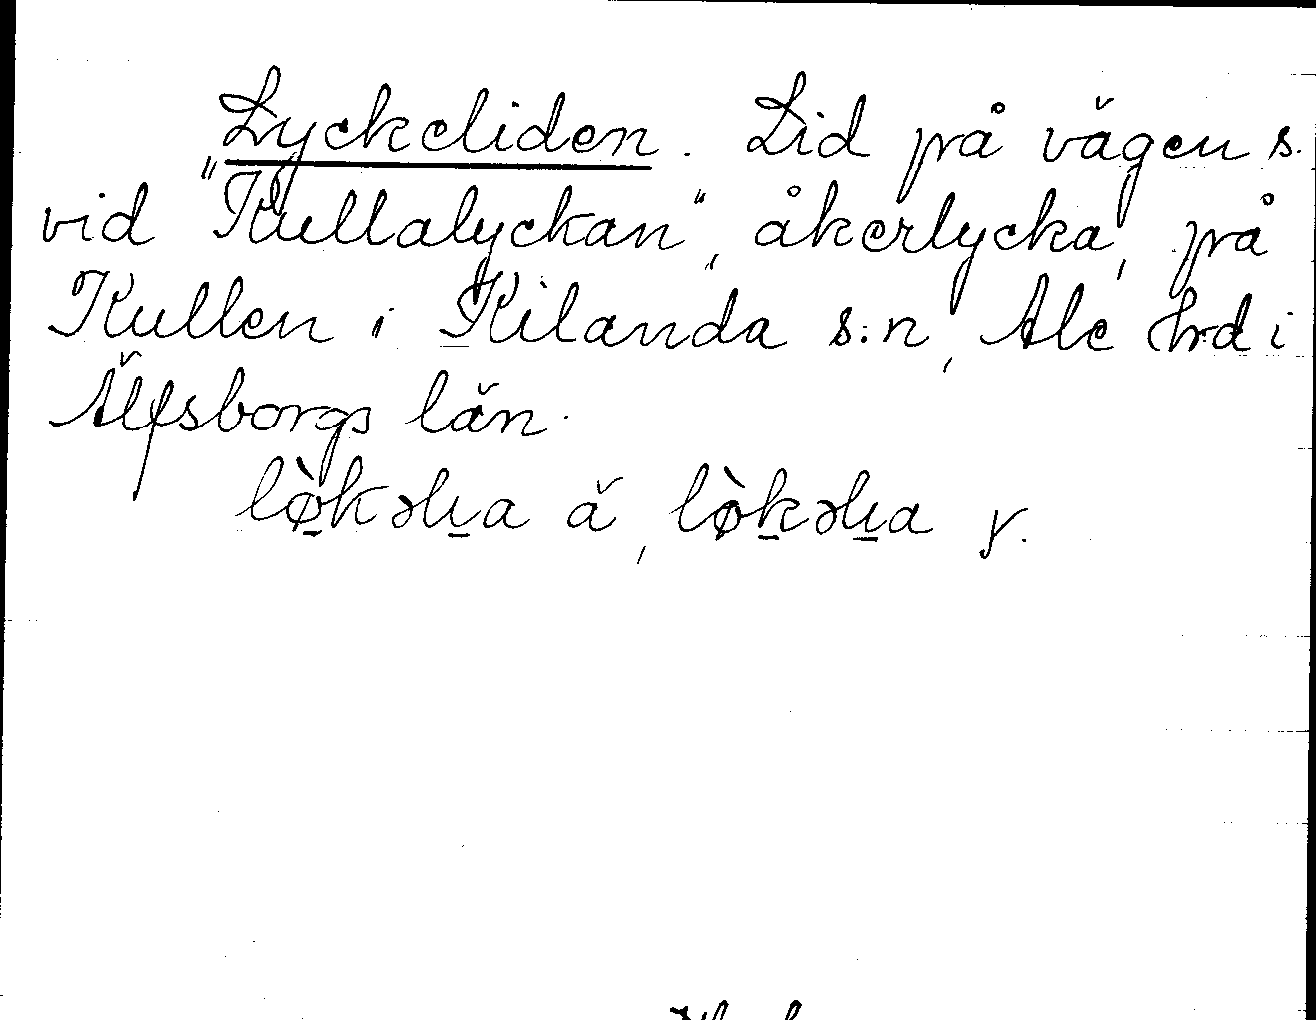 Lyckeliden. Lid på vägen s.
vid "Kullalyckan", åkerlycka, på
Kullen i Kilanda s:n, Ale hrd i
Älfsborgs län.